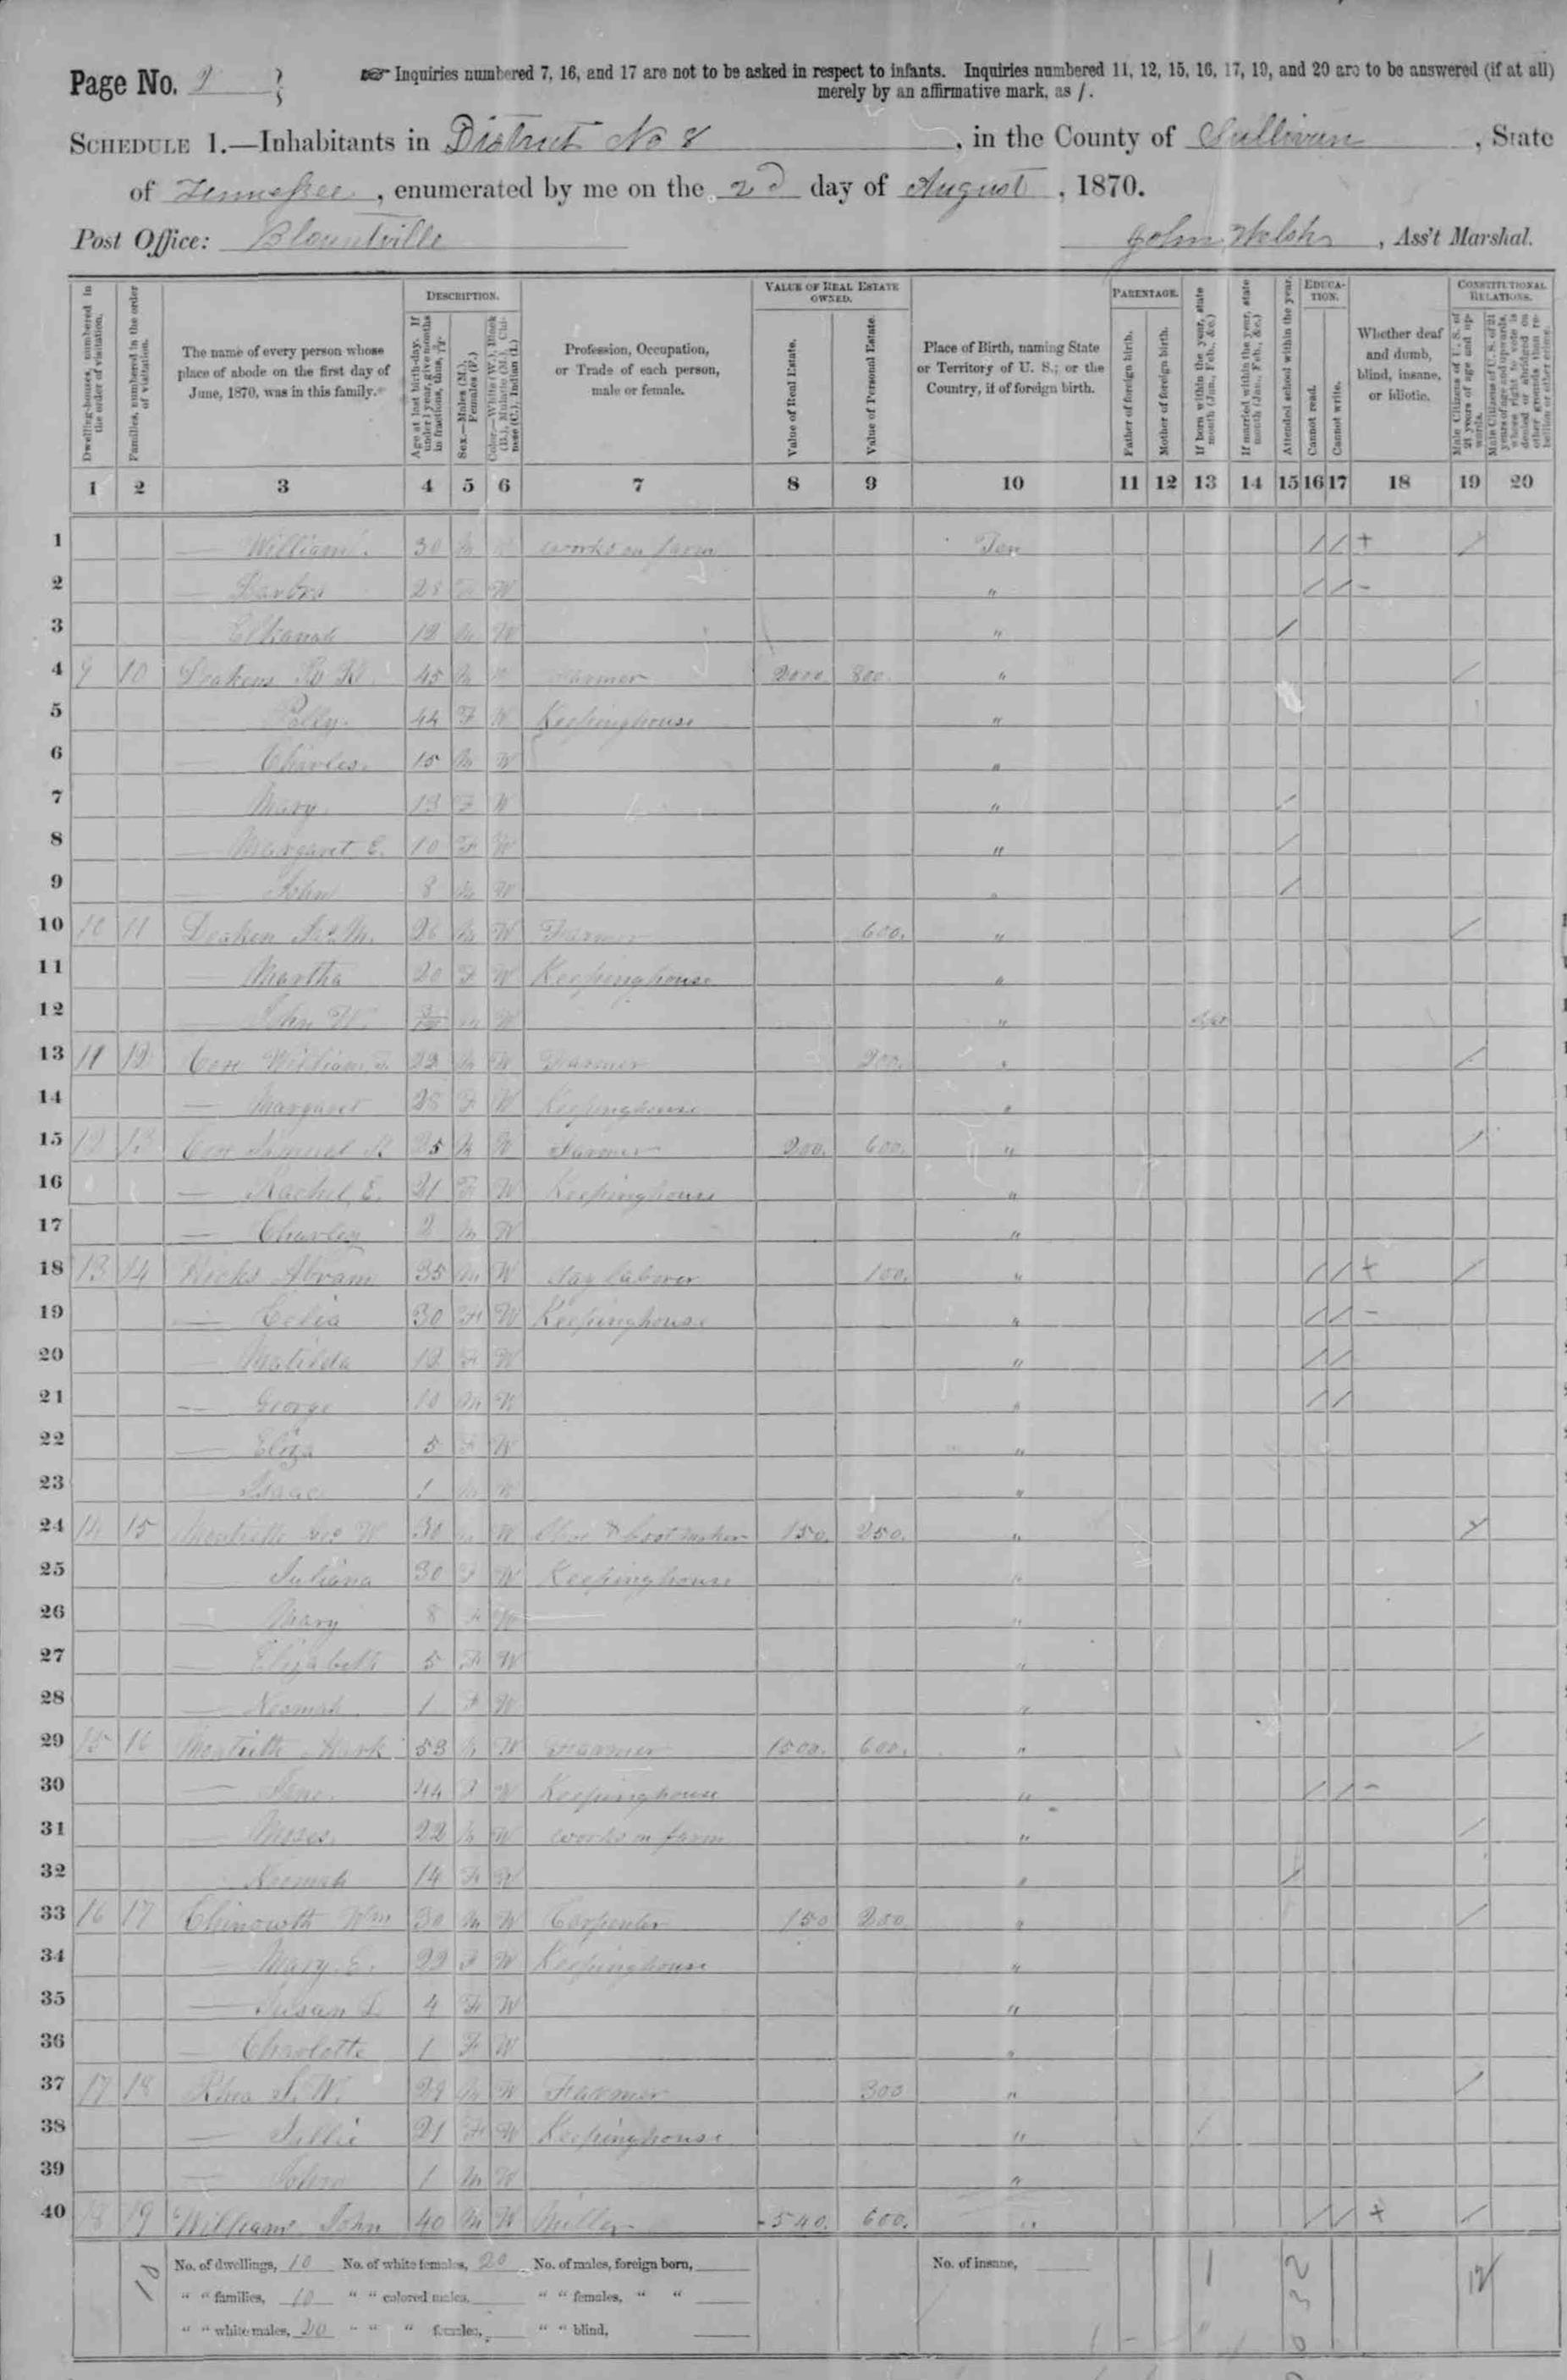 Page No. 2
☞ Inquiries numbered 7, 16, and 17 are not to be asked in respect to infants. Inquiries numbered 11, 12, 15, 16, 17, 19, and 20 are to be answered (if at all)
merely by an affirmative mark, as /.
SCHEDULE 1.—Inhabitants in District No 8, in the County of Sullivan, State
of Tennessee, enumerated by me on the 2d day of August, 1870.
Post Office: Blountville
John Welsh, Ass't Marshal.
Dwelling-houses, numbered in the order of visitation.
Families, numbered in the order of visitation.
The name of every person whose place of abode on the first day of June, 1870, was in this family.
DESCRIPTION.
Age at last birth-day. If under 1 year, give months in fractions, thus,
Sex.—Males (M.), Females (F.)
Color.—White (W.), Black (B.), Mulatto (M.), Chinese (C.), Indian (I.)
Profession, Occupation, or Trade of each person, male or female.
VALUE OF REAL ESTATE OWNED.
Value of Real Estate.
Value of Personal Estate.
Place of Birth, naming State or Territory of U. S.; or the Country, if of foreign birth.
PARENTAGE.
Father of foreign birth.
Mother of foreign birth.
If born within the year, state month (Jan., Feb., &c.)
If married within the year, state month (Jan., Feb., &c.)
Attended school within the year.
EDUCATION.
Cannot read.
Cannot write.
Whether deaf and dumb, blind, insane, or idiotic.
CONSTITUTIONAL RELATIONS.
Male Citizens of U. S. of 21 years of age and upwards.
Male Citizens of U. S. of 21 years of age and upwards, whose right to vote is denied or abridged on other grounds than rebellion or other crime.
1 2 3 4 5 6 7 8 9 10 11 12 13 14 15 16 17 18 19 20
1 — William 30 M works on farm Ten / / + /
2 — 28 F W " / / -
3 — 12 M W " /
4 9 10 45 M Farmer 2000 800 " /
5 — Polly 44 F W Keeping house "
6 — Charles 15 M W "
7 — Mary 13 F W " /
8 — Margaret E. 10 F W " /
9 — John 8 M W " /
10 10 11 Deaken 26 M W Farmer 600. " /
11 — Martha 20 F W Keeping house "
12 — John W. M W "
13 11 12 Cox William 22 M W Farmer 200. " /
14 — Margaret 28 F W Keeping house "
15 12 13 Cox Samuel 25 M W Farmer 200. 600. " /
16 — Rachel E. 21 F W Keeping house "
17 — Charley 2 M W "
18 13 14 Hicks Abram 35 M W day laborer 100. " / / + /
19 — Celia 30 F W Keeping house " / / -
20 — Matilda 12 F W " / /
21 — George 10 M W " / /
22 — Eliza 5 F W "
23 — Isaac 1 M W "
24 14 15 Monteith Geo W 30 M W Shoe & boot maker 150. 250. " /
25 — Juliana 30 F W Keeping house "
26 — Mary 8 F W "
27 — Elizabeth 5 F W "
28 — Neomah 1 F W "
29 15 16 Monteith Mark 53 M W Farmer 1500. 600. " /
30 — Jane 44 F W Keeping house " / / -
31 — Moses 22 M W works on farm " /
32 — Neomah 14 F W " /
33 16 17 Chinowth Wm 30 M W Carpenter 150 200 " /
34 — Mary E. 22 F W Keeping house "
35 — Susan 4 F W "
36 — Charlotte 1 F W "
37 17 18 Rhea S. W. 29 M W Farmer 300 " /
38 — Sallie 21 F W Keeping house "
39 — John 1 M W "
40 18 19 Williams John 40 M W Miller 540. 600. " / / + /
No. of dwellings, 10 No. of white females, 20 No. of males, foreign born, No. of insane,
" " families, 10 " " colored males, " " females, " "
" " white males, 20 " " " females, " " blind,
10 1 12